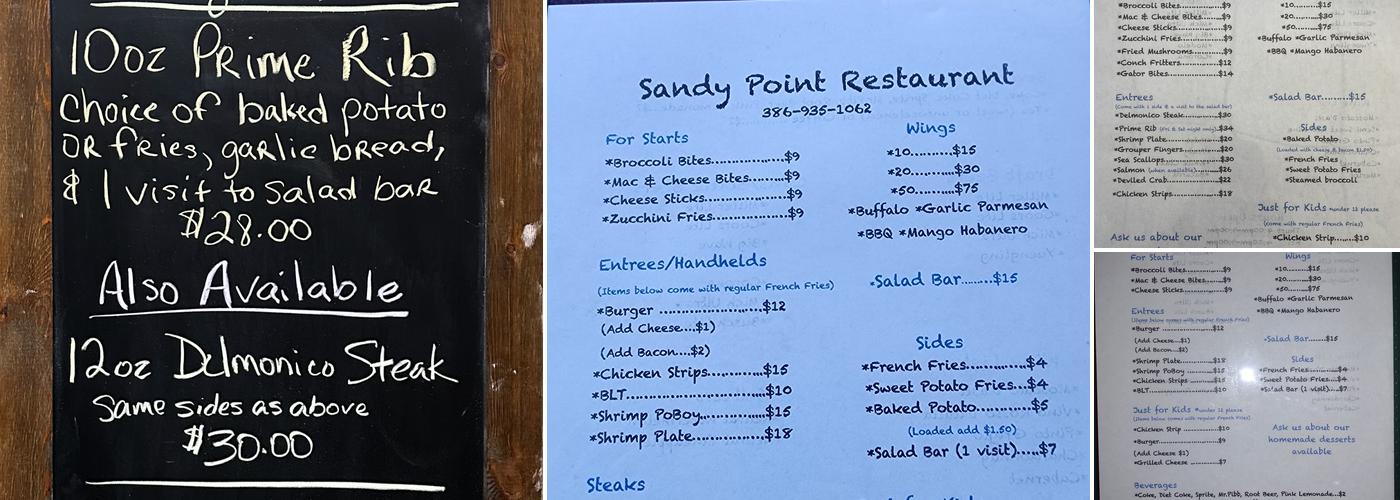 10oz Prime Rib
Choice of baked potato
OR fries, garlic bread,
& 1 visit to salad bar
$28.00
Also Available
12oz Delmonico Steak
Same sides as above
$30.00
Sandy Point Restaurant
386-935-1062
For Starts
*Broccoli Bites...............$9
*Mac & Cheese Bites.........$9
*Cheese Sticks................$9
*Zucchini Fries...............$9
Wings
*10..........$15
*20..........$30
*50..........$75
*Buffalo *Garlic Parmesan
*BBQ *Mango Habanero
Entrees/Handhelds
(Items below come with regular French Fries)
*Burger .....................$12
(Add Cheese...$1)
(Add Bacon....$2)
*Chicken Strips.............$15
*BLT..........................$10
*Shrimp PoBoy..............$15
*Shrimp Plate...............$18
*Salad Bar........$15
Sides
*French Fries.............$4
*Sweet Potato Fries...$4
*Baked Potato...........$5
(Loaded add $1.50)
*Salad Bar (1 visit)....$7
Steaks
*Broccoli Bites...............$9
*Mac & Cheese Bites.........$9
*Cheese Sticks................$9
*Zucchini Fries...............$9
*Fried Mushrooms............$9
*Conch Fritters..............$12
*Gator Bites..................$14
*10..........$15
*20..........$30
*50..........$75
*Buffalo *Garlic Parmesan
*BBQ *Mango Habanero
Entrees
(Come with 1 side & a visit to the salad bar)
*Delmonico Steak............$30
*Prime Rib (Fri & Sat night only)..$34
*Shrimp Plate................$20
*Grouper Fingers............$20
*Sea Scallops................$30
*Salmon (when available)......$26
*Deviled Crab................$22
*Chicken Strips..............$18
*Salad Bar........$15
Sides
*Baked Potato
(Loaded with cheese & bacon $1.50)
*French Fries
*Sweet Potato Fries
*Steamed broccoli
Just for Kids *under 12 please
(come with regular French Fries)
*Chicken Strip.....$10
Ask us about our
For Starts
*Broccoli Bites...............$9
*Mac & Cheese Bites.........$9
*Cheese Sticks................$9
Wings
*10..........$15
*20..........$30
*50..........$75
*Buffalo *Garlic Parmesan
*BBQ *Mango Habanero
Entrees
(Items below comes with regular French Fries)
*Burger .....................$12
(Add Cheese...$1)
(Add Bacon....$2)
*Shrimp Plate...............$18
*Shrimp PoBoy..............$15
*Chicken Strips.............$15
*BLT..........................$10
*Salad Bar........$15
Sides
*French Fries.............$4
*Sweet Potato Fries....$4
*Salad Bar (1 visit)...$7
Just for Kids *under 12 please
(Items below comes with regular French Fries)
*Chicken Strip ..............$10
*Burger......................$9
(Add Cheese $1)
*Grilled Cheese .............$7
Ask us about our
homemade desserts
available
Beverages
*Coke, Diet Coke, Sprite, Mr.Pibb, Root Beer, Pink Lemonade...$2